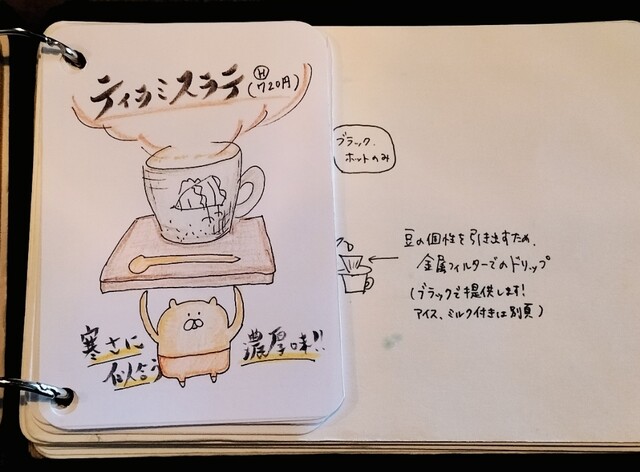 ティラミスラテ
Ⓗ
(720円)
寒さに
似合う
濃厚味!!
ブラック、
ホットのみ
豆の個性を引き出すため、
金属フィルターでのドリップ
(ブラックで提供します!
アイス、ミルク付きは別頁)